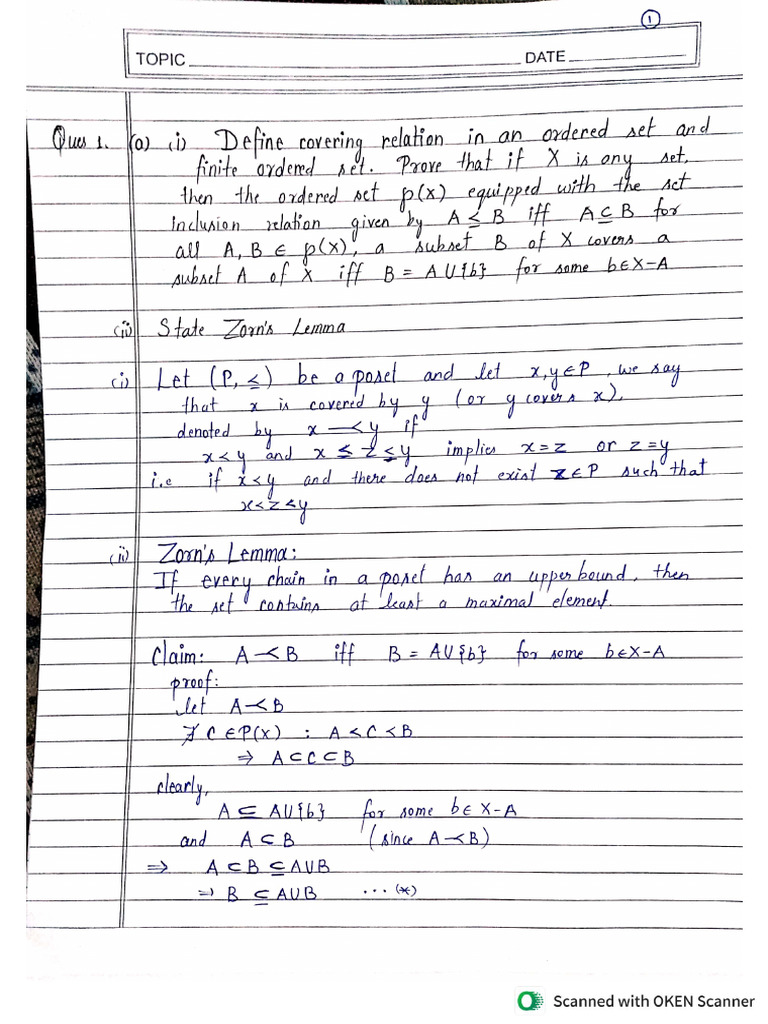 1
TOPIC DATE
Ques 1. (a) (i) Define covering relation in an ordered set and
finite ordered set. Prove that if X is any set,
then the ordered set p(x) equipped with the set
inclusion relation given by A ≤ B iff A ⊆ B for
all A, B ∈ p(x), a subset B of X covers a
subset A of X iff B = A∪{b} for some b∈X-A
(ii) State Zorn's Lemma
(i) Let (P, ≤) be a poset and let x,y∈P, we say
that x is covered by y (or y covers x),
denoted by x ⤙ y if
x<y and x ≤ z ≤ y implies x=z or z=y
i.e if x<y and there does not exist z∈P such that
x<z<y
(ii) Zorn's Lemma:
If every chain in a poset has an upper bound, then
the set contains at least a maximal element.
Claim: A ⤙ B iff B = A∪{b} for some b∈X-A
proof:
let A ⤙ B
∄ C∈P(X) : A<C<B
⇒ A⊂C⊂B
clearly,
A ⊆ A∪{b} for some b∈X-A
and A⊂B (since A ⤙ B)
⇒ A⊂B⊆A∪B
⇒ B⊆A∪B ...(*)
Scanned with OKEN Scanner